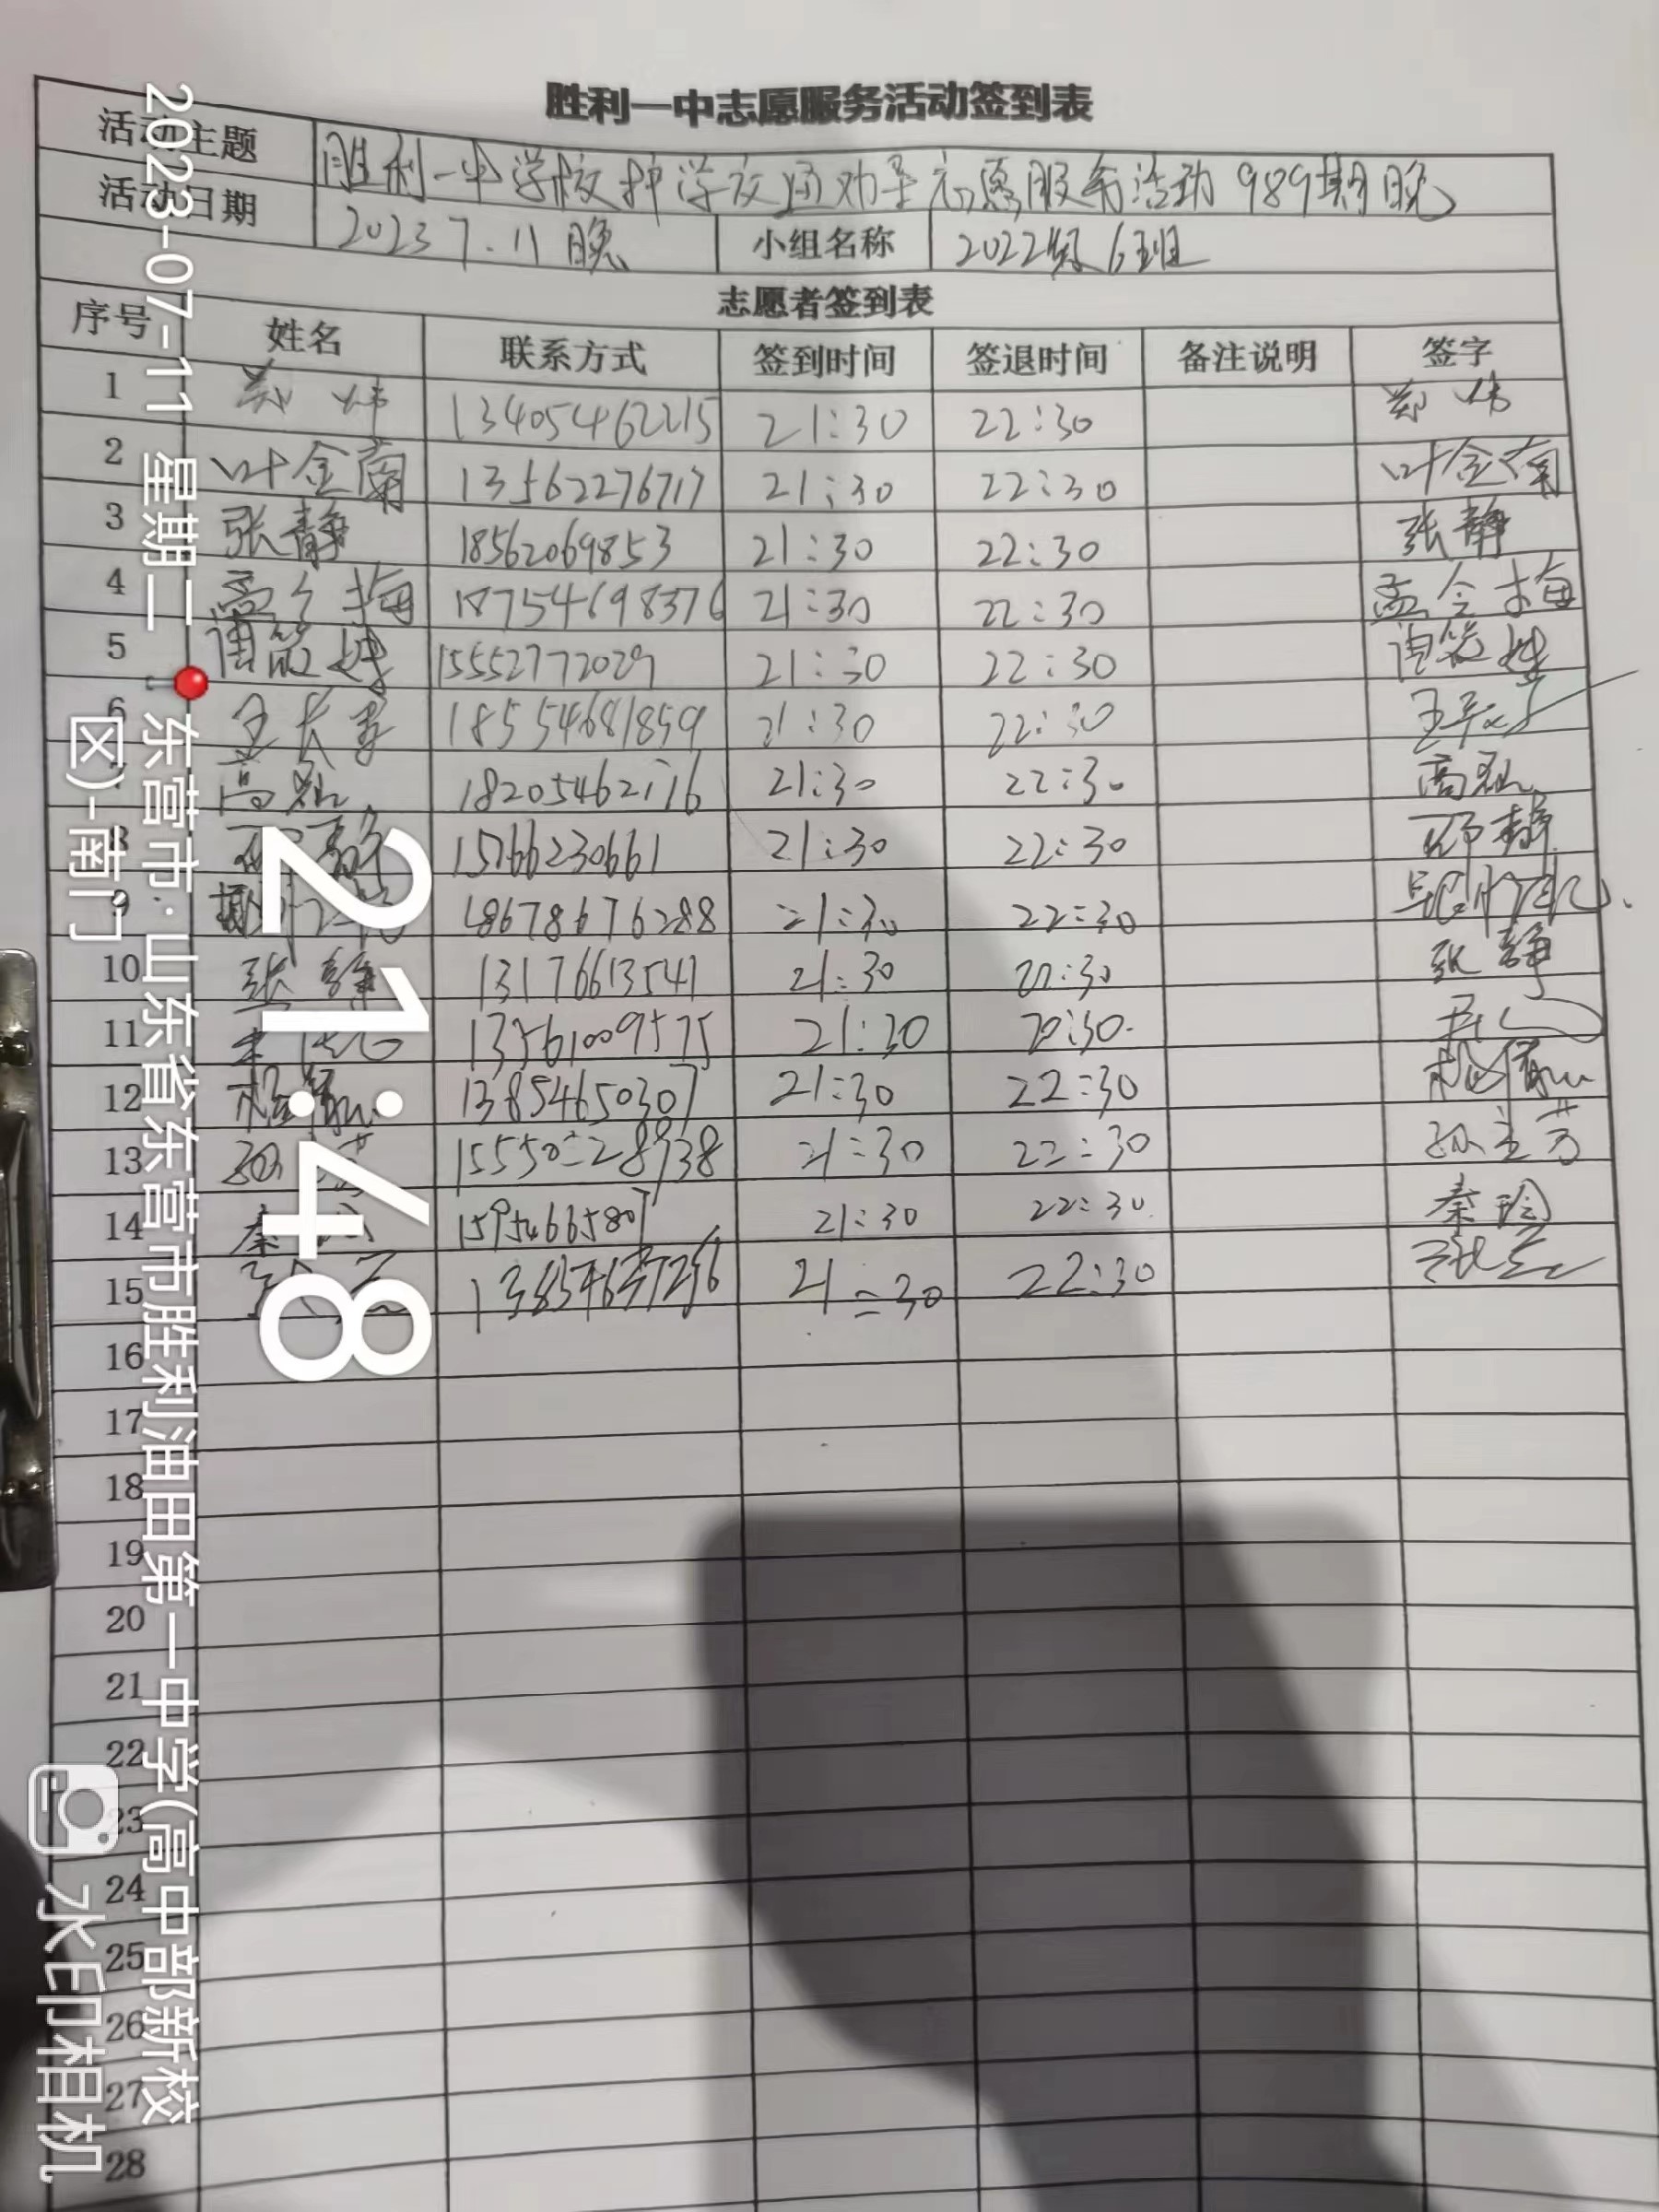 胜利一中志愿服务活动签到表
活动主题 胜利一中学校护学交通劝导志愿服务活动 989期晚
活动日期 2023 7.11 晚 小组名称 2022级6班
志愿者签到表
序号 姓名 联系方式 签到时间 签退时间 备注说明 签字
1 郑炜 13405462215 21:30 22:30 郑炜
2 叶金南 13562276717 21:30 22:30 叶金南
3 张静 18562069853 21:30 22:30 张静
4 孟令梅 18754698376 21:30 22:30 孟令梅
5 15552772029 21:30 22:30
6 18554681859 21:30 22:30
7 高 21:30 22:30 高
8 15766230661 21:30 22:30
9 18678676288 21:30 22:30
10 张静 13176613541 21:30 22:30 张静
11 13561009575 21:30
12 13854650307 21:30 22:30
13 孙 21:30 22:30 孙
14 秦 21:30 22:30 秦
15 21:30 22:30
16
17
18
19
20
21
22
23
24
25
26
27
28
21:48
2023-07-11 星期二
东营市·山东省东营市胜利油田第一中学(高中部新校
区)-南门
水印相机